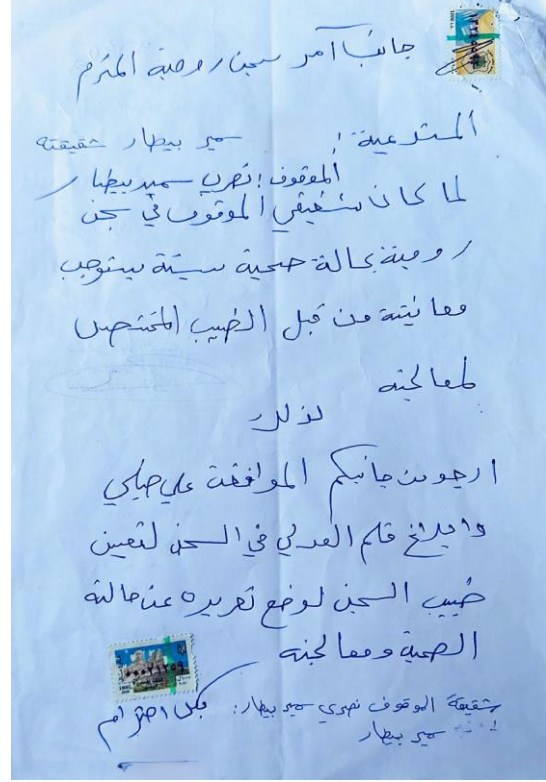 جانب آمر سجن رومية المحترم
المستدعية: سمير بيطار شقيقته
الموقوف: نصري سمير بيطار
لما كان شقيقي الموقوف في سجن
رومية بحالة صحية سيئة يستوجب
معاينته من قبل الطبيب المختص
لمعالجته
لذلك
ارجو من جانبكم الموافقة على طلبي
وابلاغ قلم العدلي في السجن لتعين
طبيب السجن لوضع تقريره عن حالته
الصحية ومعالجته
بكل احترام
شقيقة الموقوف نصري سمير بيطار:
سمير بيطار